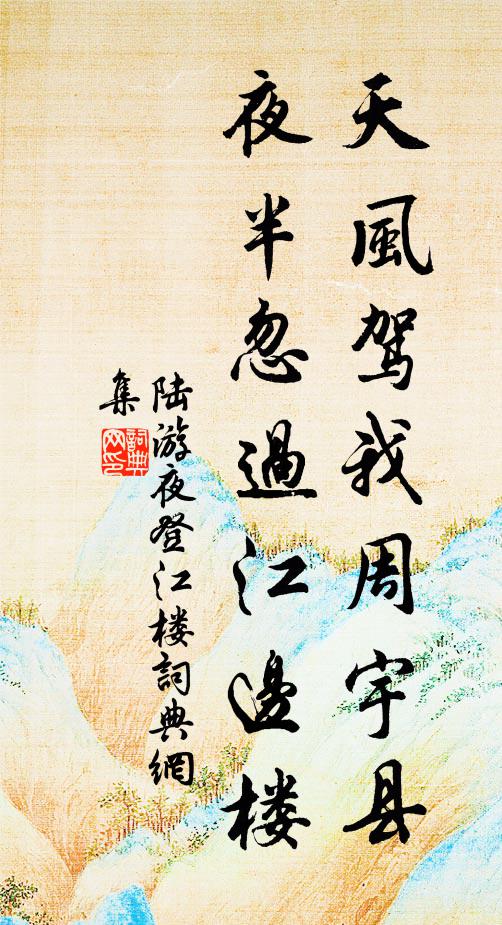 天風駕我周宇县
夜半忽過江邊楼
陆游夜登江楼詞典網
集
詞典
网印